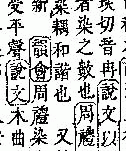 琰切音冉說文以
者染之斂也周禮
耦和諧也又
韻會周禮染
受平聲說文木曲